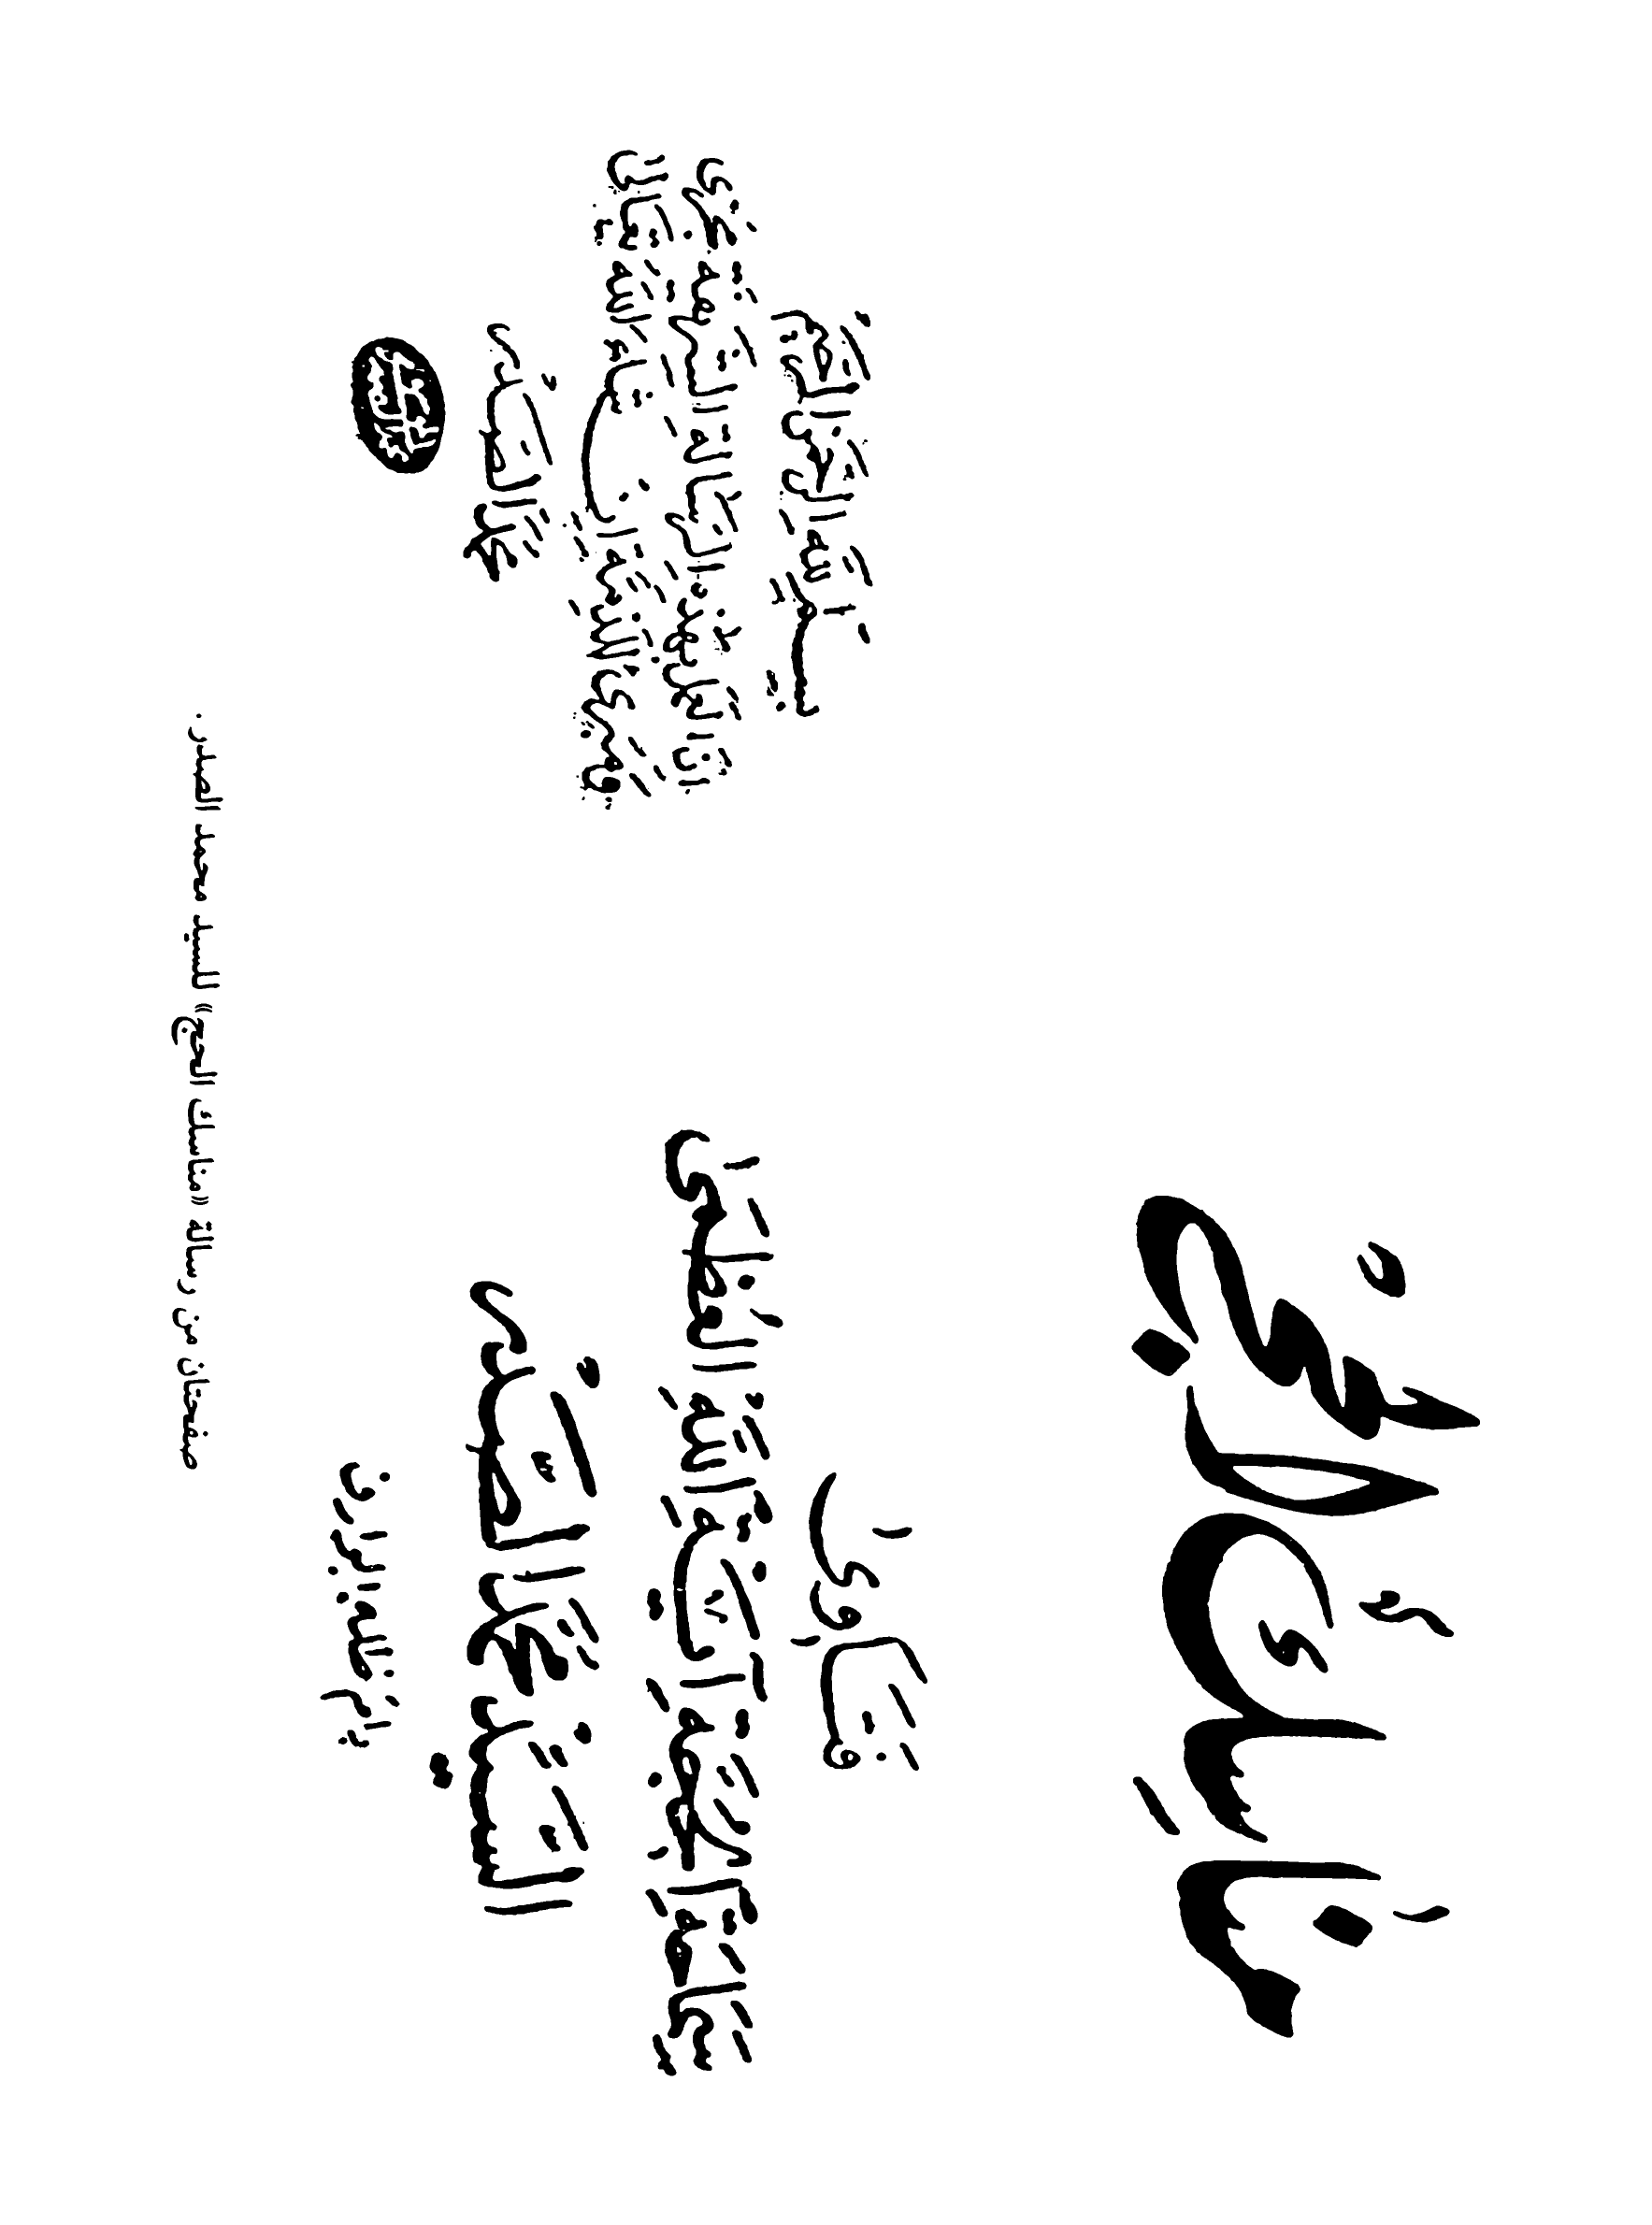 مناسك الحج
فتاوى
آية الله العظمى
السيد محمد الصدر
دام ظله الوارف
بسم الله الرحمن الرحيم
ان العمل بهذه الرسالة الشريفة مجزئ
ومبرئ للذمة ان شاء الله تعالى
محمد الصدر
صفحتان من رسالة «مناسك الحج» للسيد محمد الصدر.